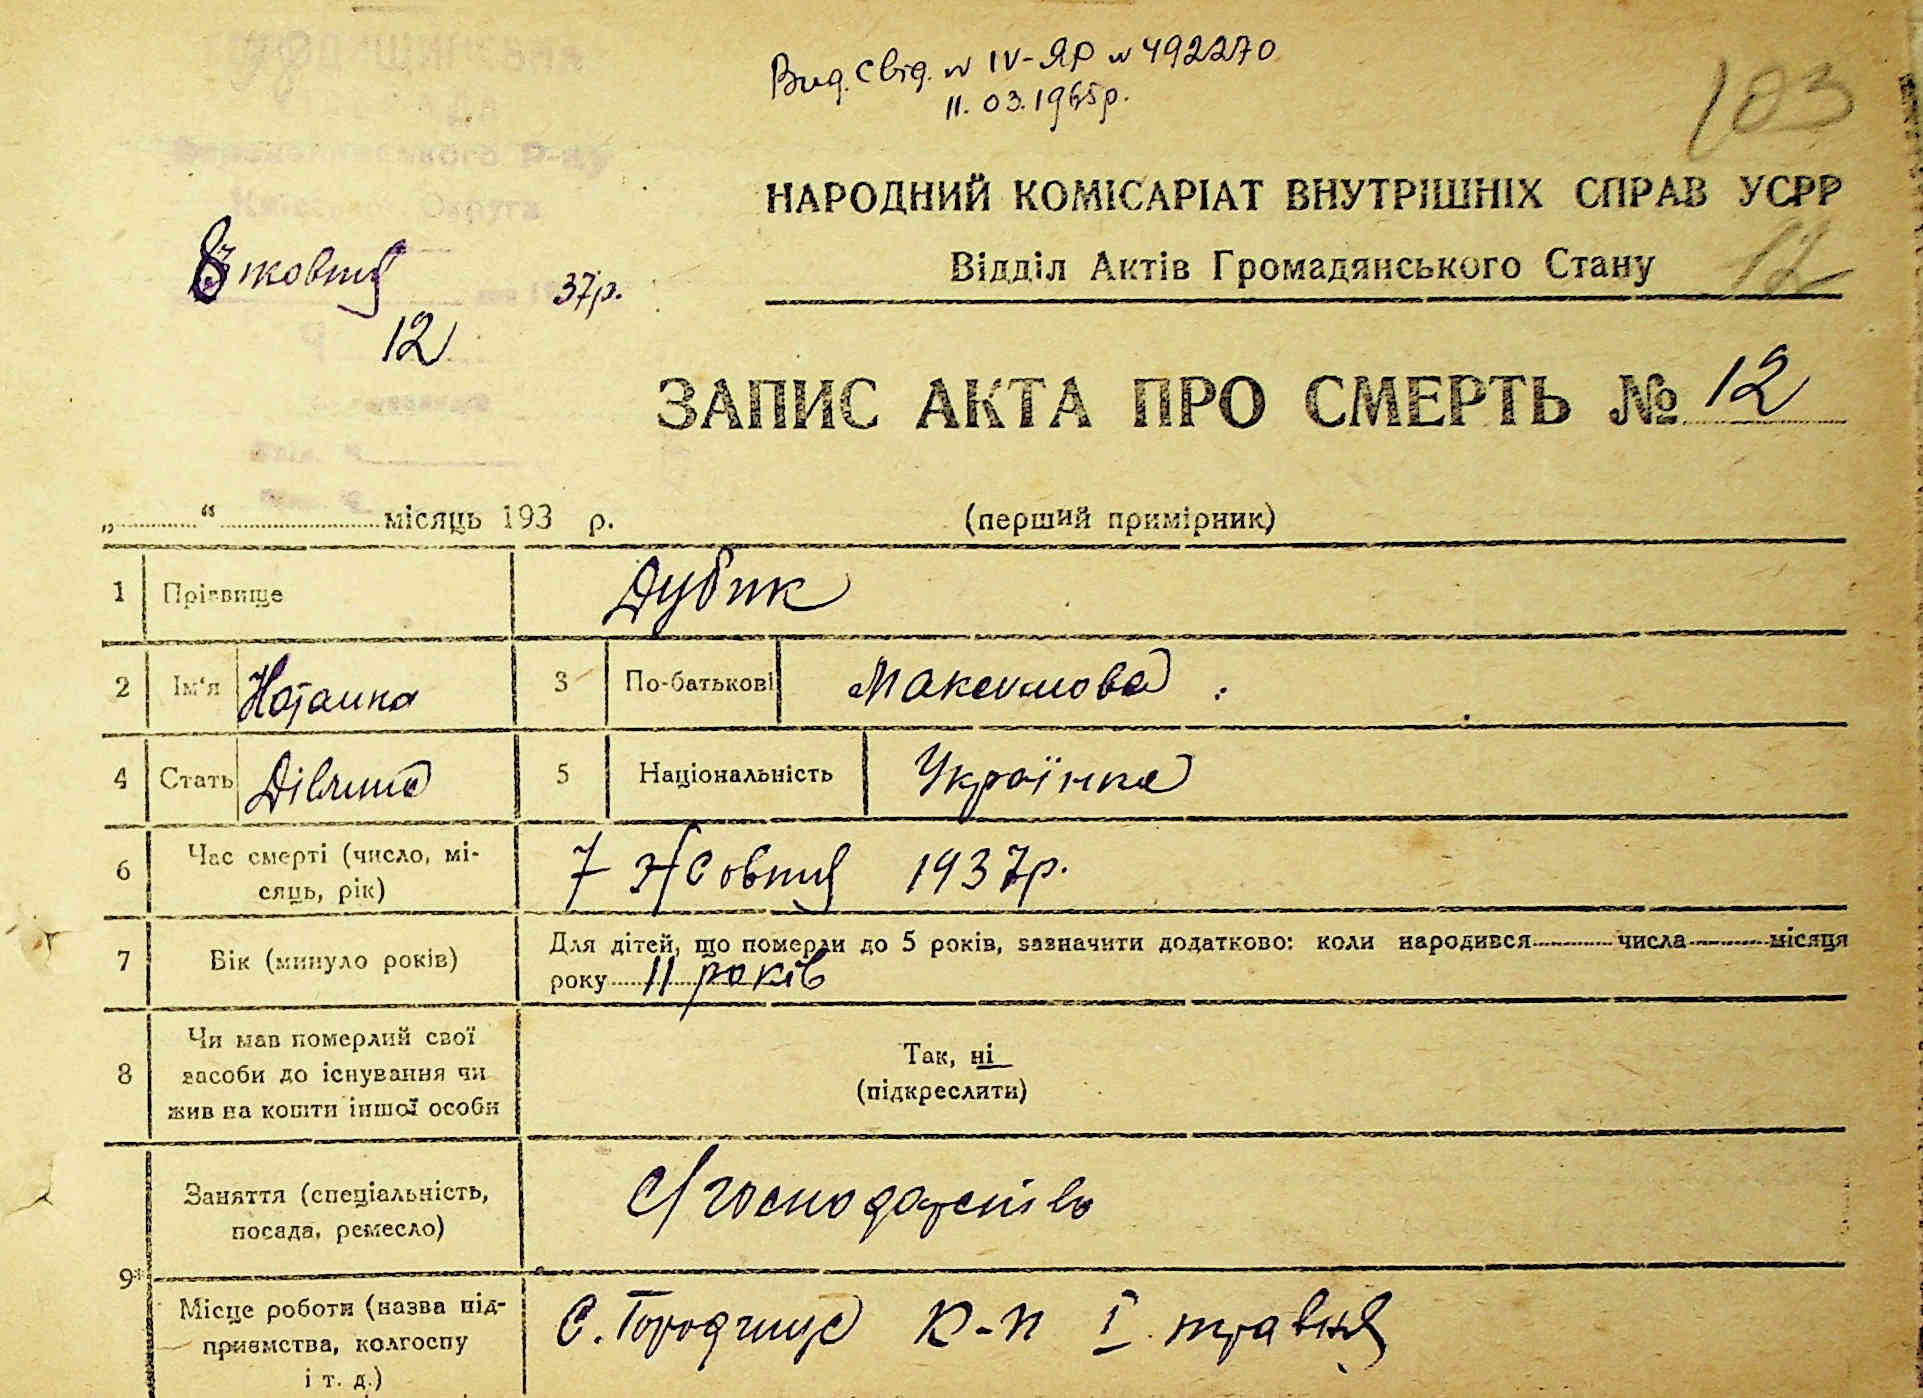 Вид. Свід. № IV-ЯР № 492270
11. 03. 1965р.
103
НАРОДНИЙ КОМІСАРІАТ ВНУТРІШНІХ СПРАВ УСРР
Відділ Актів Громадянського Стану
12
Округа
8 жовтня 37р.
12
ЗАПИС АКТА ПРО СМЕРТЬ № 12
„ “ місяць 193 р.
(перший примірник)
1 Прізвище Дубик
2 Ім'я Наталка 3 По-батькові Максимова
4 Стать Дівчина 5 Національність Українка
6 Час смерті (число, мі-
сяць, рік) 7 Жовтня 1937р.
7 Вік (минуло років) Для дітей, що померли до 5 років, зазначити додатково: коли народився числа місяця
року 11 років
8 Чи мав померлий свої
засоби до існування чи
жив на кошти іншої особи
Так, ні
(підкреслити)
9* Заняття (спеціальність,
посада, ремесло) С/господарство
Місце роботи (назва під-
приємства, колгоспу
і т. д.) С. Городище к-п І травня